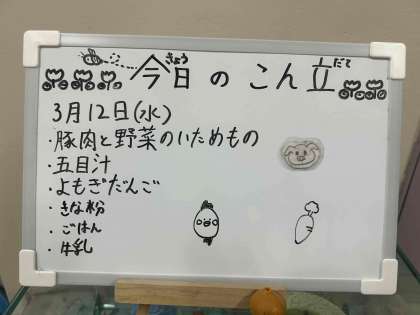 今日のこん立
きょう だて
3月12日(水)
・豚肉と野菜のいためもの
・五目汁
・よもぎだんご
・きな粉
・ごはん
・牛乳